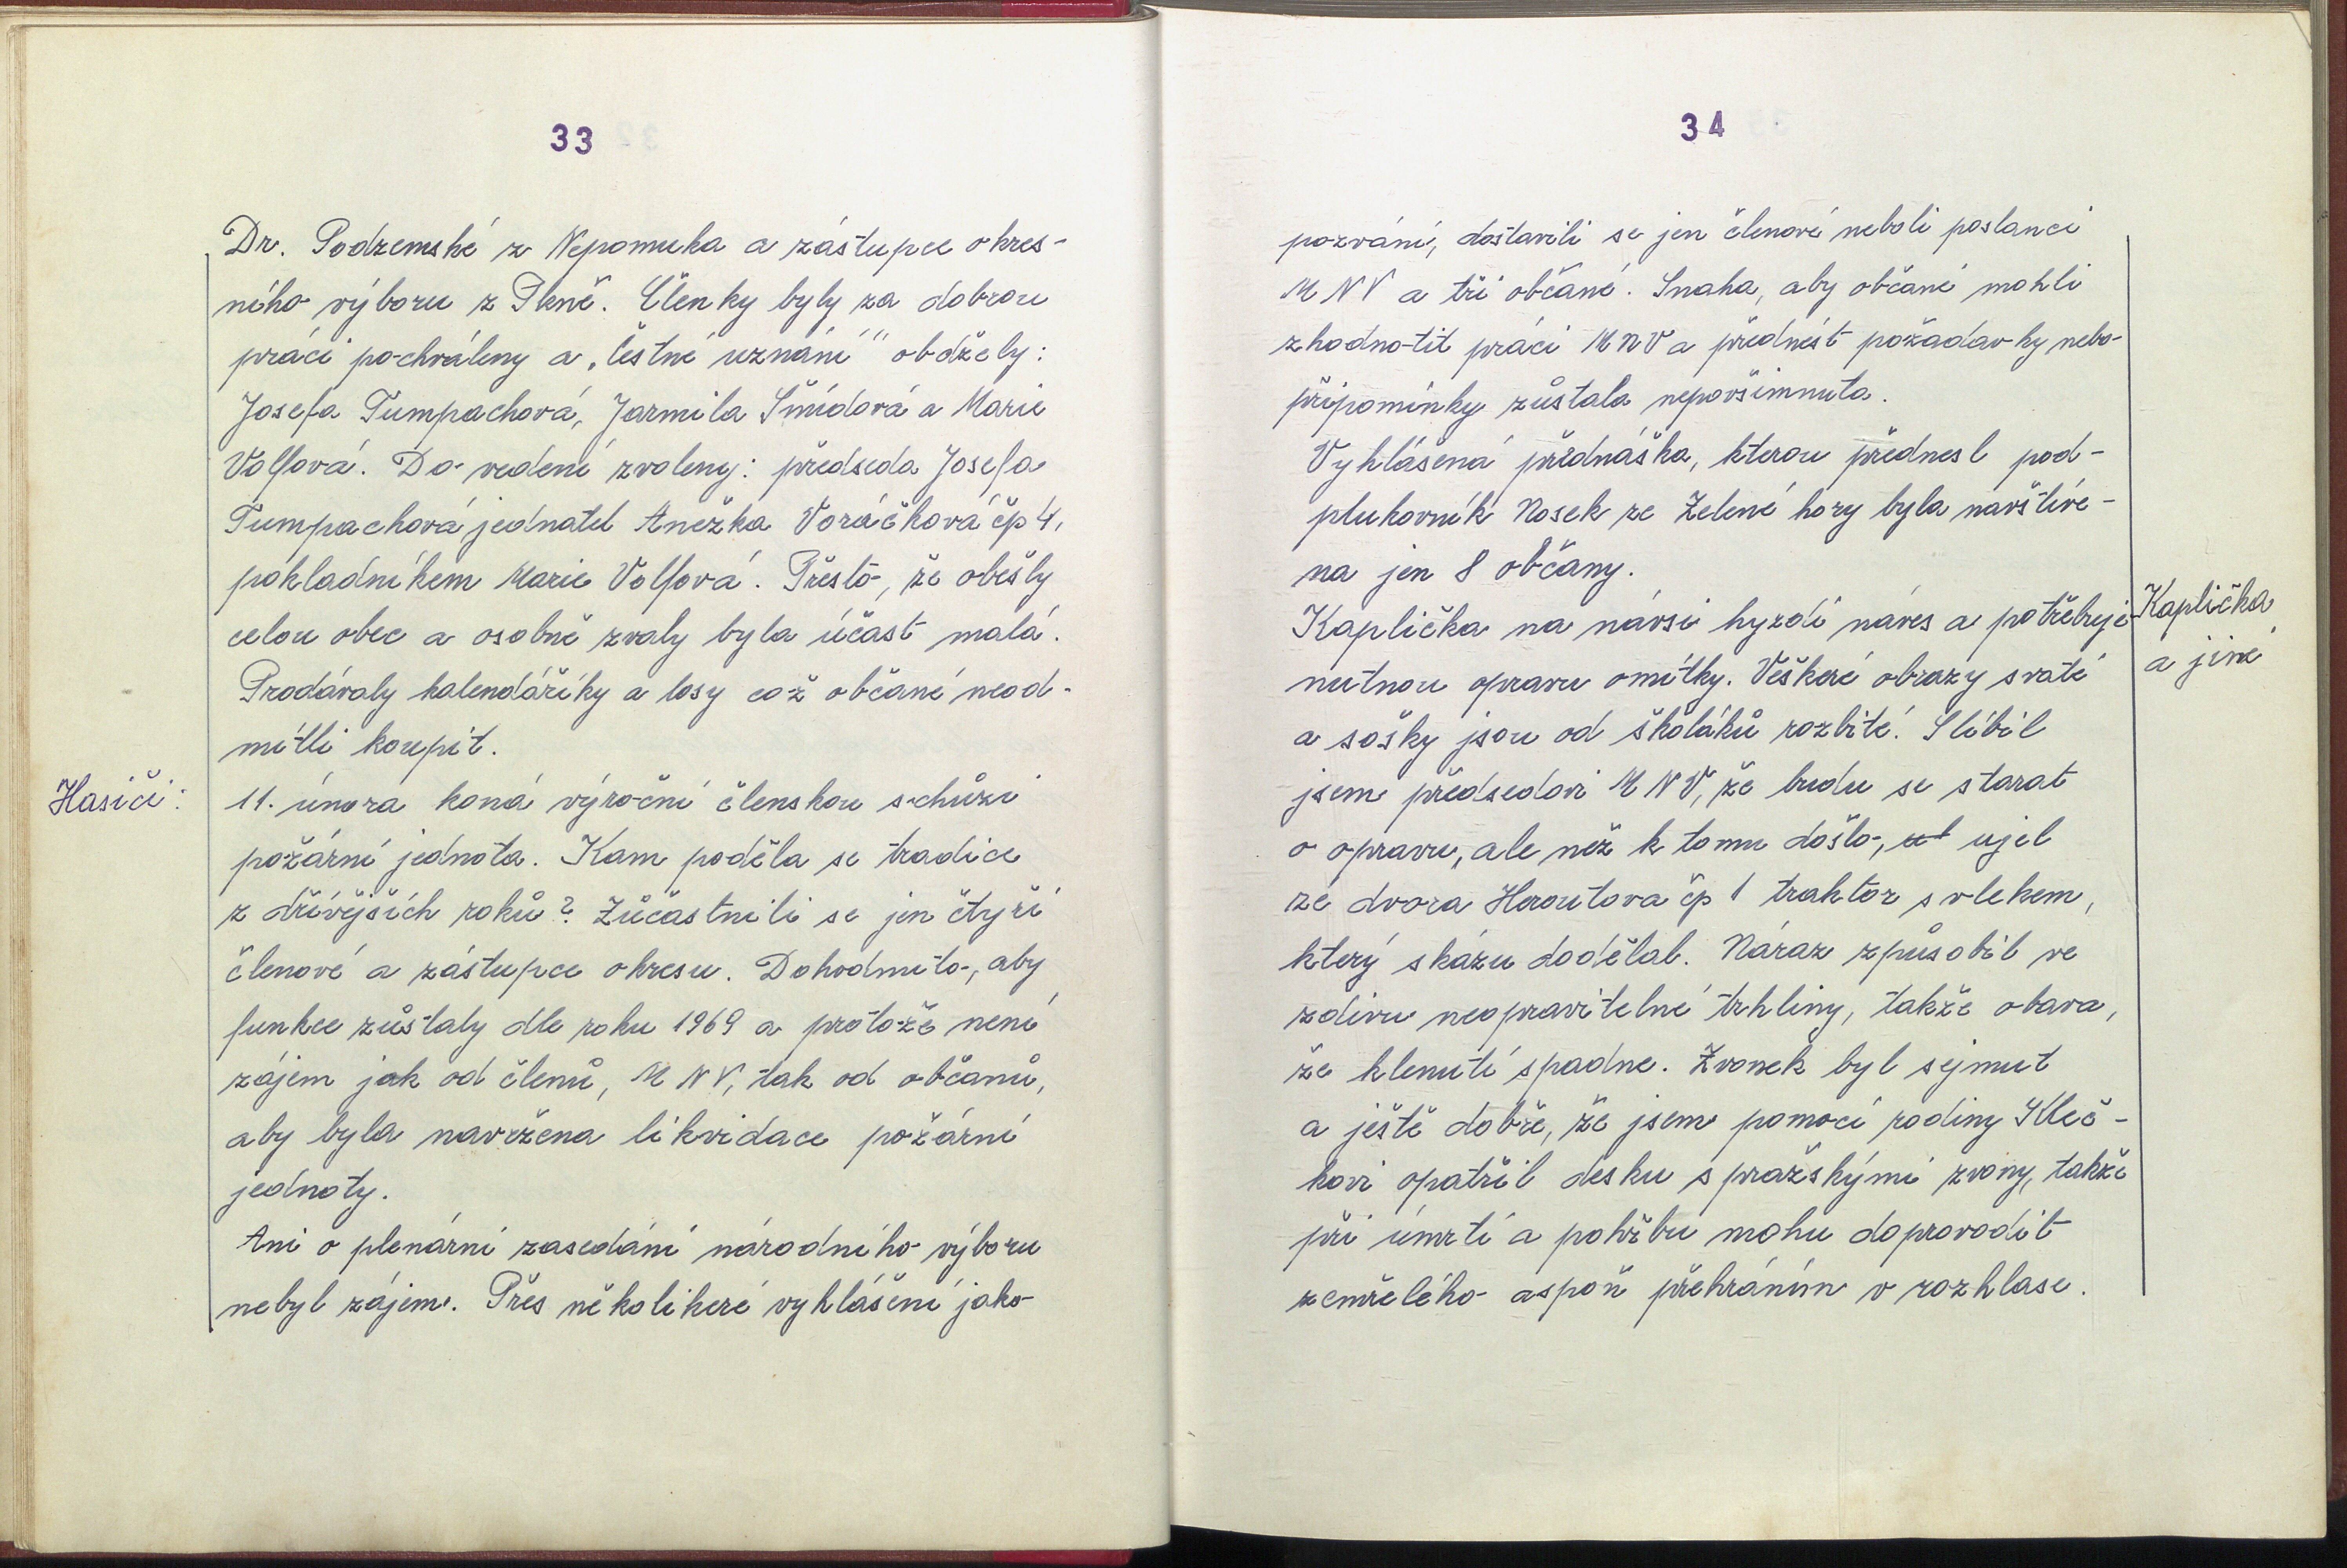 33
Dr. Podzemské z Nepomuka a zástupce okres-
ního výboru z Plzně. Členky byly za dobrou
práci pochváleny a „čestné uznání" obdžely:
Josefa Tumpachová, Jarmila Šmídová a Marie
Volfová. Do vedení zvoleny: předseda Josefa
Tumpachová jednatel Anežka Voráčková čp 4,
pokladníkem Marie Volfová. Přesto, že obešly
celou obec a osobně zvaly byla účast malá.
Prodávaly kalendáříky a losy což občané neod-
mítli koupit.
Hasiči:
11. února koná výroční členskou schůzi
požární jednota. Kam poděla se tradice
z dřívějších roků? Zůčastnili se jen čtyři
členové a zástupce okresu. Dohodnuto, aby
funkce zůstaly dle roku 1969 a protože není
zájem jak od členů, MNV, tak od občanů,
aby byla navržena likvidace požární
jednoty.
Ani o plenární zasedání národního výboru
nebyl zájem. Přes několikeré vyhlášení jako
34
pozvání, dostavili se jen členové neboli poslanci
MNV a tři občané. Snaha, aby občané mohli
zhodnotit práci MNV a přednést požadavky nebo
připomínky zůstala nepovšimnuta.
Vyhlášená přednáška, kterou přednesl pod-
plukovník Nosek ze Zelené hory byla navštíve-
na jen 8 občany.
Kaplička na návsi hyzdí náves a potřebuje
Kaplička
a jiné
nutnou opravu omítky. Veškeré obrazy svaté
a sošky jsou od školáků rozbité. Slíbil
jsem předsedovi MNV, že budu se starat
o opravu, ale než k tomu došlo, ujel
ze dvora Heroutova čp 1 traktor s vlekem,
který skázu dodělal. Náraz způsobil ve
zdivu neopravitelné trhliny, takže obava,
že klenutí spadne. Zvonek byl sejmut
a ještě dobře, že jsem pomocí rodiny Kleč-
kovi opatřil desku s pražskými zvony, takže
při úmrtí a pohřbu mohu doprovodit
zemřelého aspoň přehráním v rozhlase.